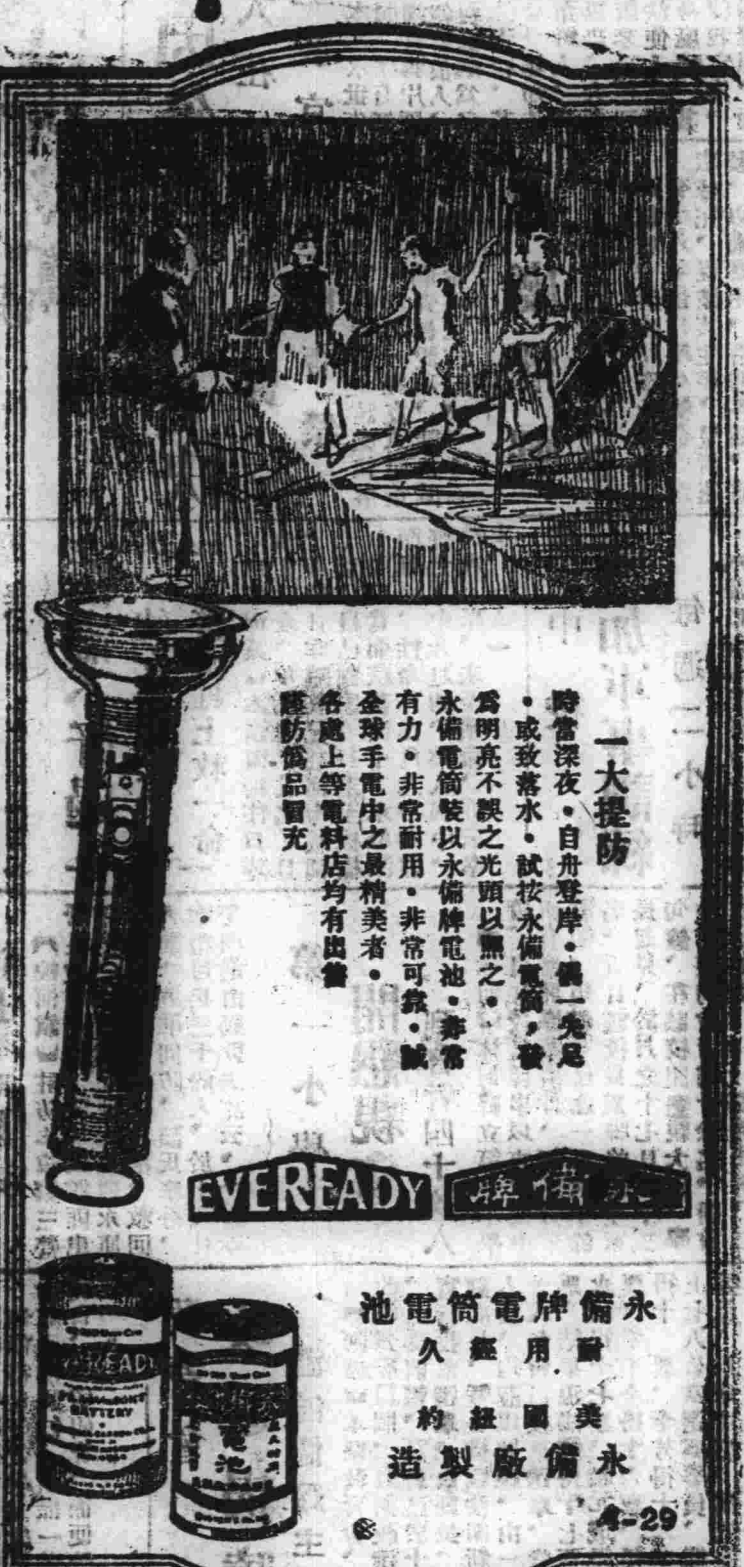 一大提防
時當深夜。自舟登岸。偶一失足
。或致落水。試按永備電筒，發
爲明亮不誤之光頭以照之。
永備電筒裝以永備牌電池。非常
有力。非常耐用。非常可靠。誠
全球手電中之最精美者。
各處上等電料店均有出售
謹防僞品冒充
EVEREADY
永備牌
永備牌電筒電池
耐用經久
美國紐約
永備廠製造
EVEREADY
BATTERY
電池
4-29